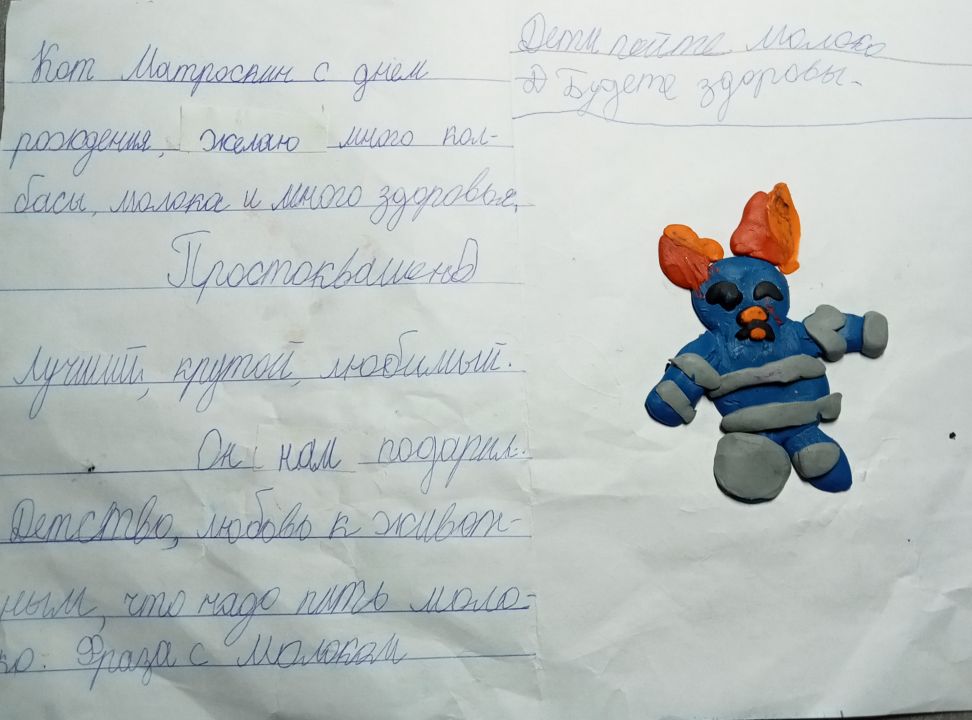 Кот Матроскин с днем
рождения, желаю много кол-
басы, молока и много здоровья,
Простоквашено
Лучший, крутой, любимый.
Он нам подарил.
Детство, любовь к живот-
ным, что надо пить моло-
ко. Фраза с молоком
Дети пейте молоко
Будете здоровы.